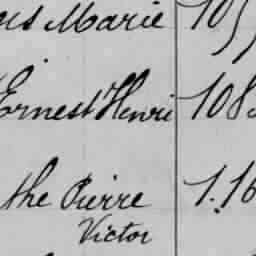 Marie 105
Ernest Henri 108
the Pierre 1.16
Victor